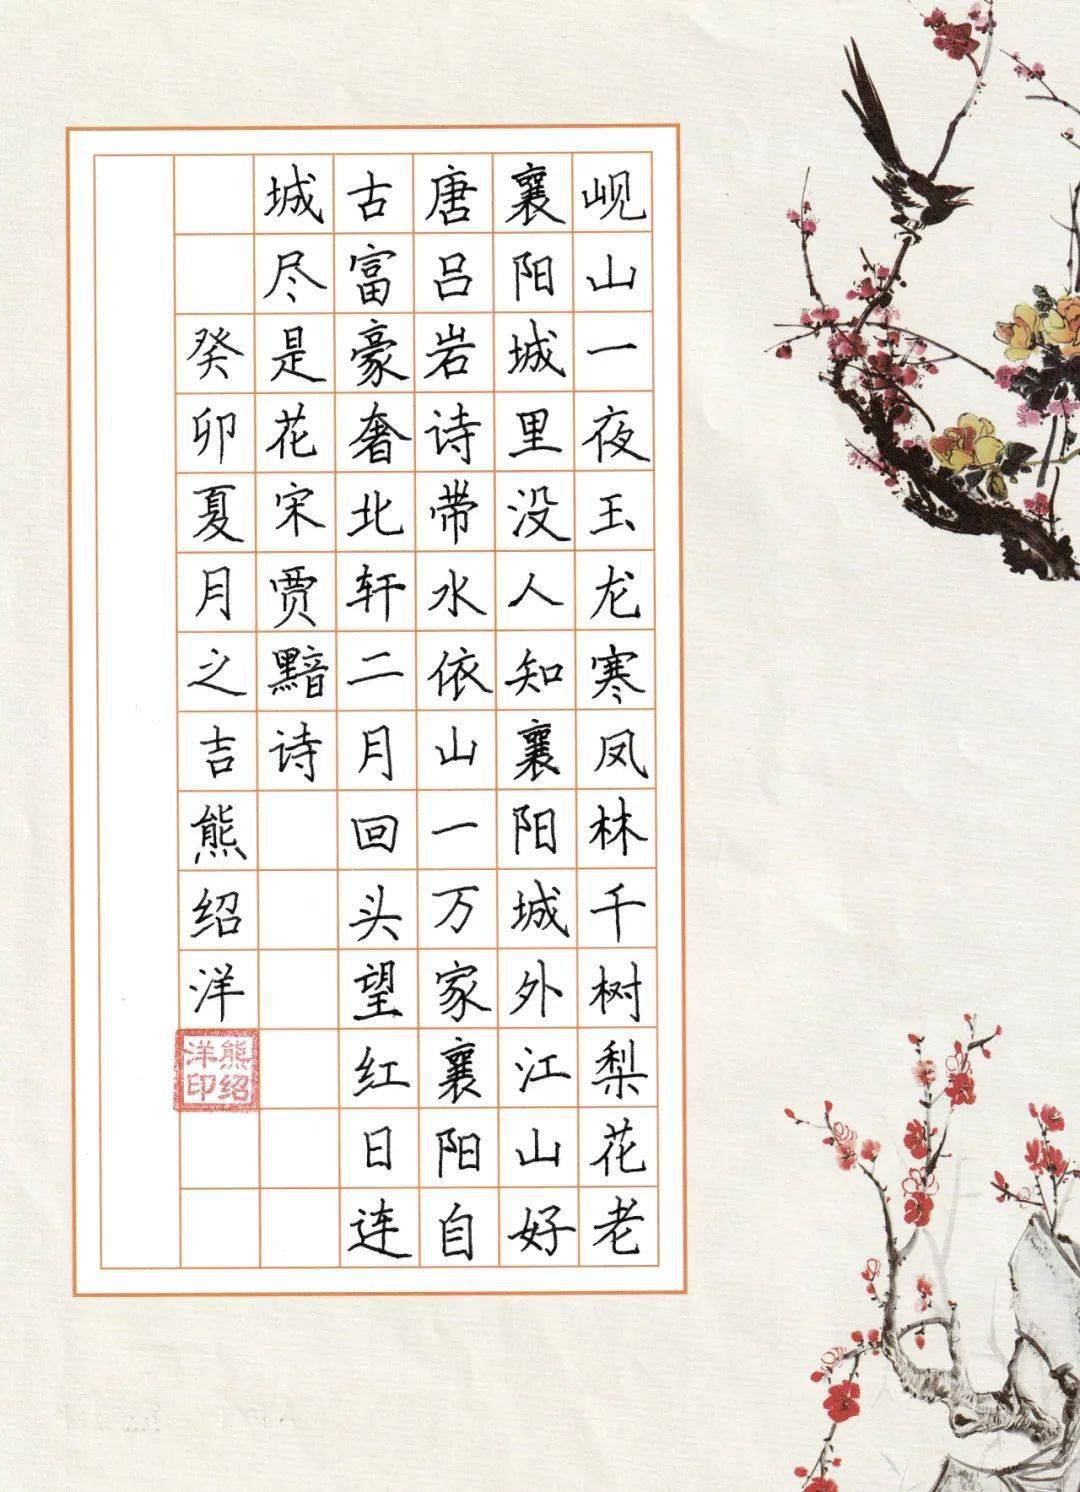 岘山一夜玉龙寒凤林千树梨花老
襄阳城里没人知襄阳城外江山好
唐吕岩诗带水依山一万家襄阳自
古富豪奢北轩二月回头望红日连
城尽是花宋贾黯诗
癸卯夏月之吉熊绍洋
熊绍洋印